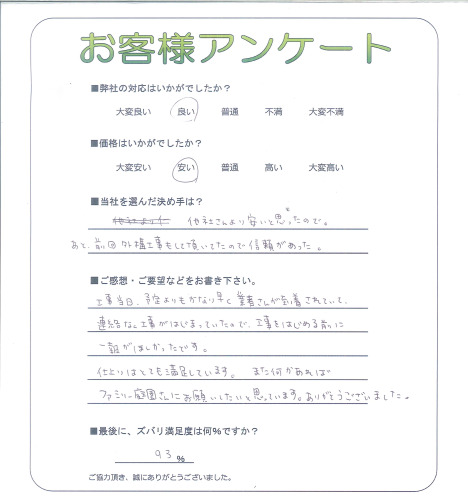 お客様アンケート
■弊社の対応はいかがでしたか？
大変良い 良い 普通 不満 大変不満
■価格はいかがでしたか？
大変安い 安い 普通 高い 大変高い
■当社を選んだ決め手は？
他社さんより安いと思ったので。
あと、前回外構工事もして頂いてたので信頼があった。
■ご感想・ご要望などをお書き下さい。
工事当日、予定よりもかなり早く業者さんが到着されていて、
連絡なく工事がはじまっていたので、工事をはじめる前に
一報がほしかったです。
仕上りはとても満足しています。 また何かあれば
ファミリー庭園さんにお願いしたいと思っています。ありがとうございました。
■最後に、ズバリ満足度は何％ですか？
93 %
ご協力頂き、誠にありがとうございました。